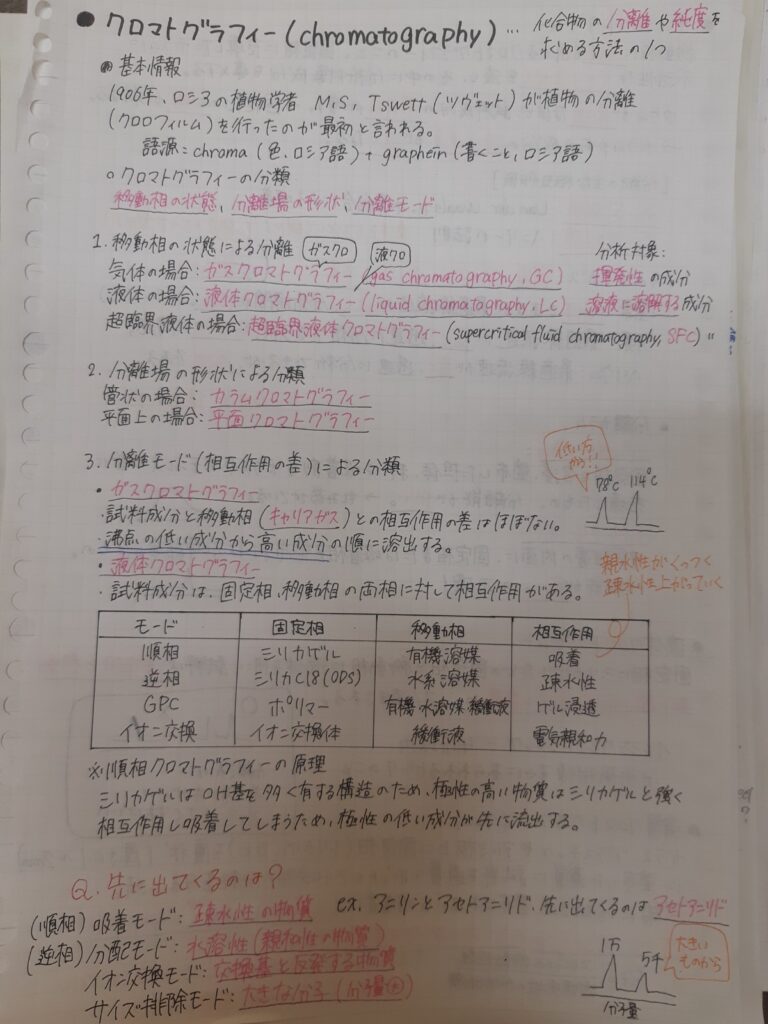 ● クロマトグラフィー(chromatography)… 化合物の分離や純度を
求める方法の1つ
基本情報
1906年、ロシアの植物学者 M,S, Tswett(ツヴェット)が植物の分離
(クロロフィルム)を行ったのが最初と言われる。
語源=chroma(色、ロシア語)+graphein(書くこと、ロシア語)
○クロマトグラフィーの分類
移動相の状態、分離場の形状、分離モード
1. 移動相の状態による分離 ガスクロ 液クロ 分析対象:
気体の場合:ガスクロマトグラフィー(gas chromatography, GC) 揮発性の成分
液体の場合:液体クロマトグラフィー(liquid chromatography, LC) 溶液に溶解する成分
超臨界液体の場合:超臨界液体クロマトグラフィー(supercritical fluid chromatography, SFC) 〃
2. 分離場の形状による分類
管状の場合: カラムクロマトグラフィー
平面上の場合:平面クロマトグラフィー
3. 分離モード(相互作用の差)による分類
低い方から!!
78℃ 114℃
・ガスクロマトグラフィー
・試料成分と移動相(キャリアガス)との相互作用の差はほぼない。
・沸点の低い成分から高い成分の順に溶出する。
・液体クロマトグラフィー
親水性がくっつく
疎水性上がっていく
・試料成分は、固定相、移動相の両相に対して相互作用がある。
モード 固定相 移動相 相互作用
順相 シリカゲル 有機溶媒 吸着
逆相 シリカC18(ODS) 水系溶媒 疎水性
GPC ポリマー 有機・水溶媒・緩衝液 ゲル浸透
イオン交換 イオン交換体 緩衝液 電気親和力
※順相クロマトグラフィーの原理
シリカゲルはOH基を多く有する構造のため、極性の高い物質はシリカゲルと強く
相互作用し吸着してしまうため、極性の低い成分が先に流出する。
Q. 先に出てくるのは?
(順相)吸着モード:疎水性の物質 ex. アニリンとアセトアニリド、先に出てくるのはアセトアニリド
(逆相)分配モード:水溶性(親和性の物質)
イオン交換モード:交換基と反発する物質
サイズ排除モード:大きな分子(分子量大)
1万 5千 大きいものから
分子量